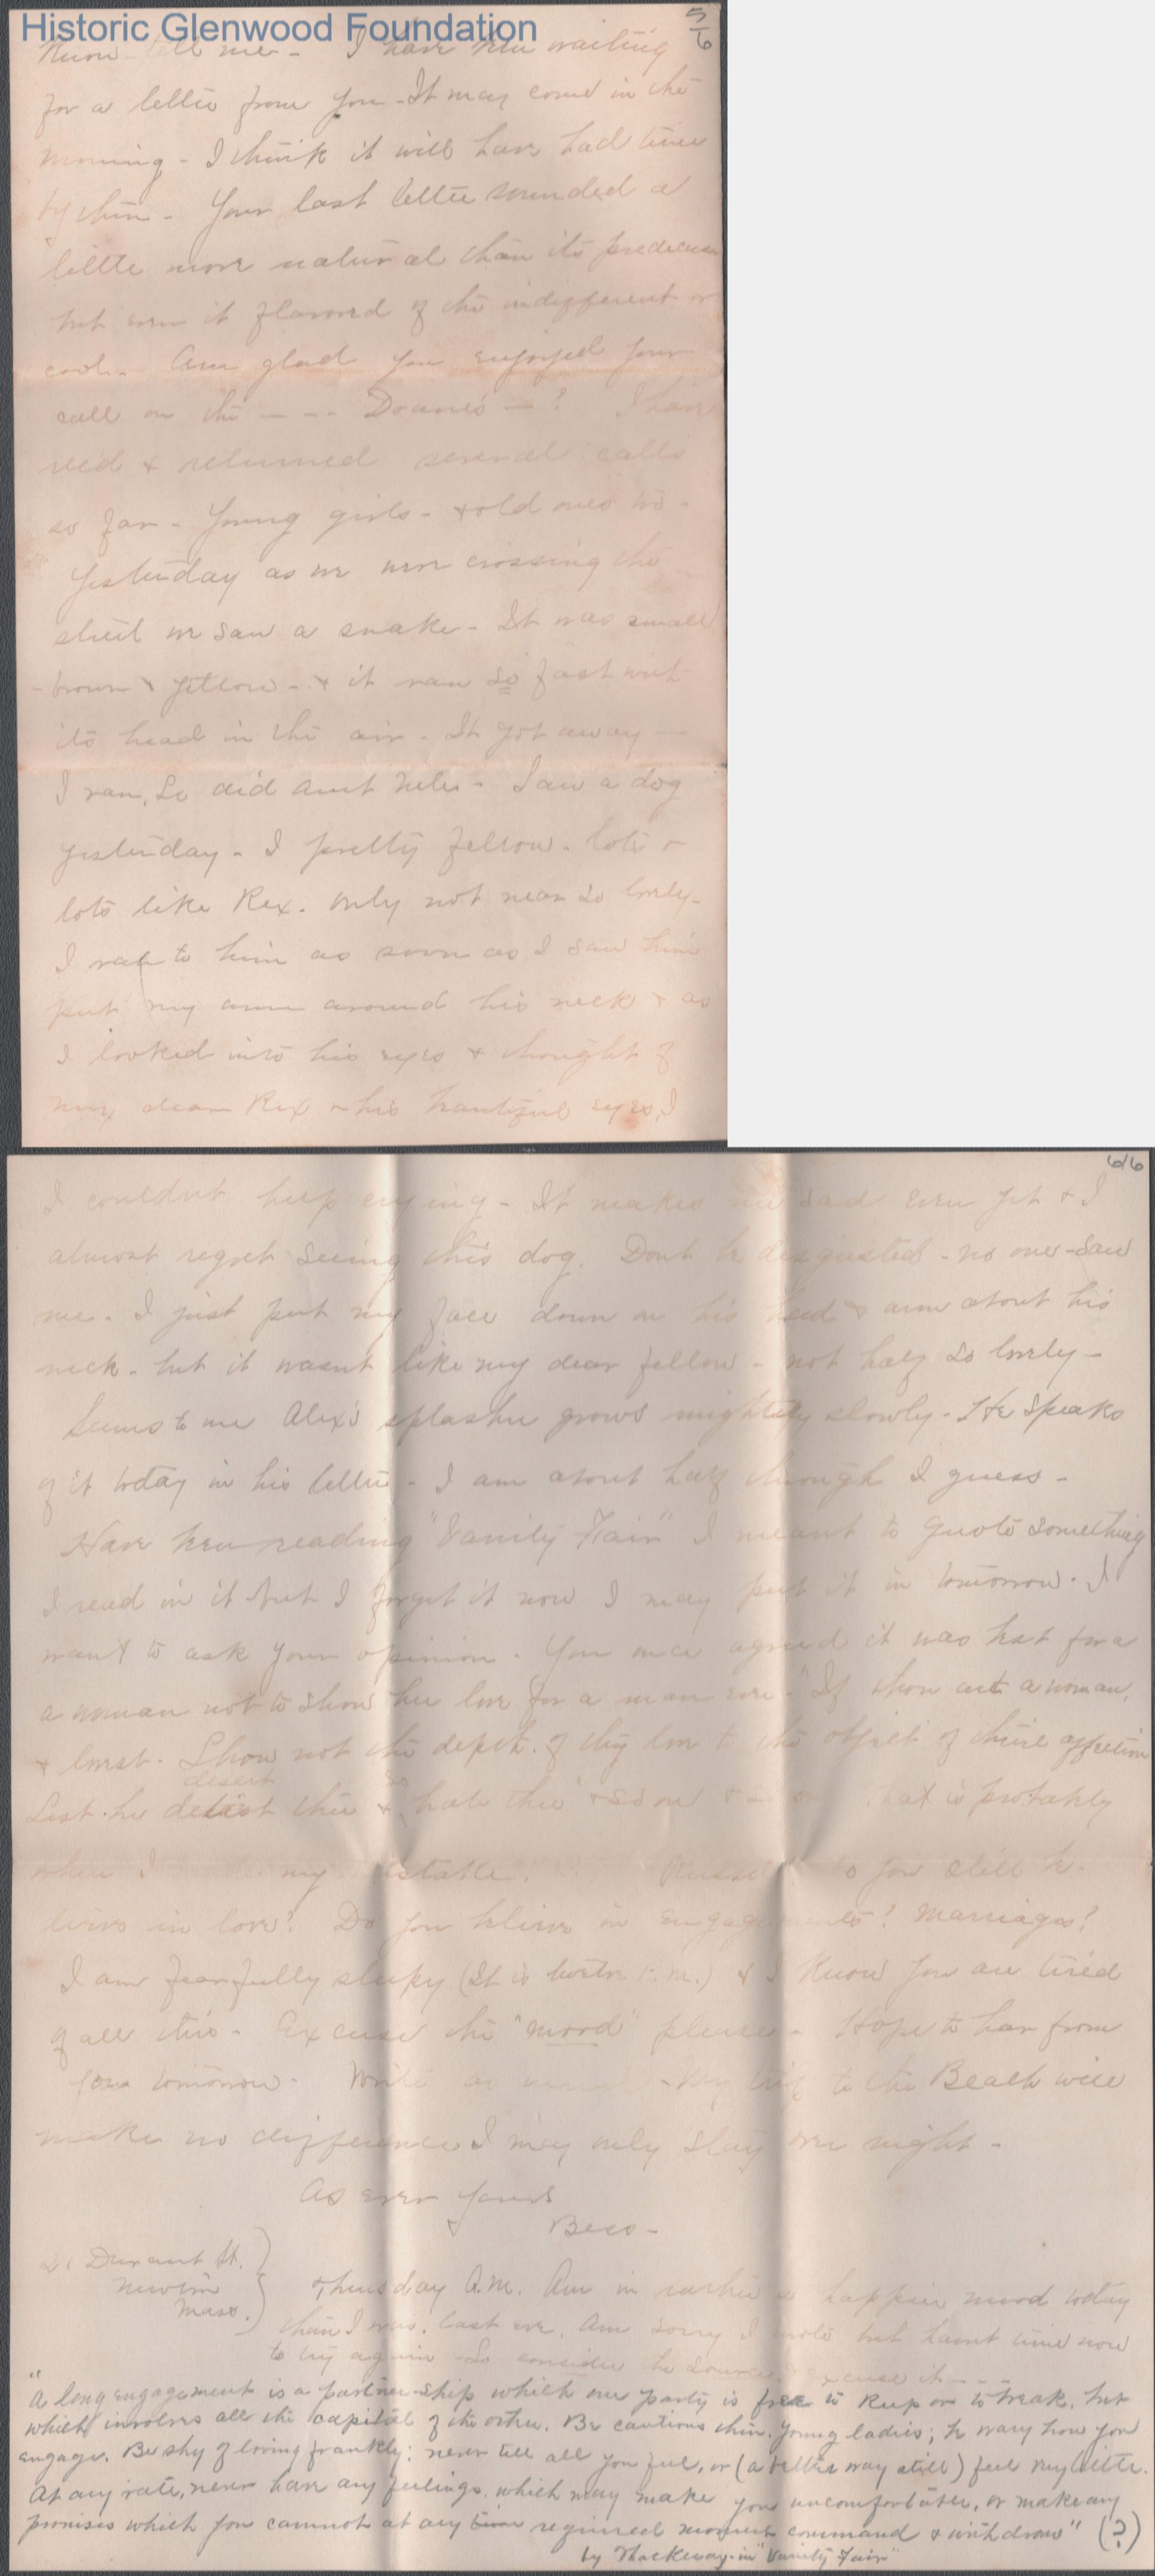 Historic Glenwood Foundation
5/6
Know tell me - I have been waiting
for a letter from you - It may come in the
morning - I think it will have had time
by then - Your last letter sounded a
little more natural than its predecessor
but even it flavored of the indifferent or
cool. Am glad you enjoyed your
call on the - - - Doane's - ! I have
rec'd & returned several calls
so far - Young girls - & old ones too -
Yesterday as we were crossing the
street we saw a snake - It was small
- brown & yellow - & it ran so fast with
its head in the air - It got away -
I ran, so did Aunt Helen - Saw a dog
yesterday - I pretty fellow - lots &
lots like Rex. only not near so lovely -
I ran to him as soon as I saw him
put my arm around his neck & as
I looked into his eyes & thought of
my dear Rex & his beautiful eyes, I
6/6
I couldn't help crying - It makes me sad even yet & I
almost regret seeing this dog. Dont be disgusted - no one saw
me - I just put my face down on his head & arm about his
neck - but it wasnt like my dear fellow - not half so lovely -
Seems to me Alex's splasher grows mightily slowly - He speaks
of it today in his letter - I am about half through I guess -
Have been reading "Vanity Fair" I meant to quote something
I read in it but I forget it now I may put it in tomorrow. I
want to ask your opinion. You once agreed it was best for a
a woman not to show her love for a man ever - "If thou art a woman,
& lovest. Show not the depth of thy love to the object of thine affection
desert so
Lest he detest thee & hate thee" & so on & so on That is probably
when I my mistake. Russell do you still be-
lieve in love? Do you believe in engagements! Marriages!
I am fearfully sleepy (It is twelve P.M.) & I know you are tired
of all this - Excuse the "mood" please - Hope to hear from
you tomorrow - Write as usual - My trip to the Beach will
make no difference I may only stay over night -
As ever yours
Bess -
Durant St.
Newton
Mass.
Thursday A.M. Am in rather a happier mood today
than I was last eve. Am sorry I wrote but havnt time now
to try again - So consider the source & excuse it - - -
"A long engagement is a partnership which one party is free to keep or to break, but
which involves all the capital of the other. Be cautious then, young ladies; be wary how you
engage. Be shy of loving frankly; never tell all you feel, or (a better way still) feel very little.
At any rate, never have any feelings, which may make you uncomfortable, or make any
promises which you cannot at any time required moment command & withdraw" (?)
by Thackeray - in "Vanity Fair"